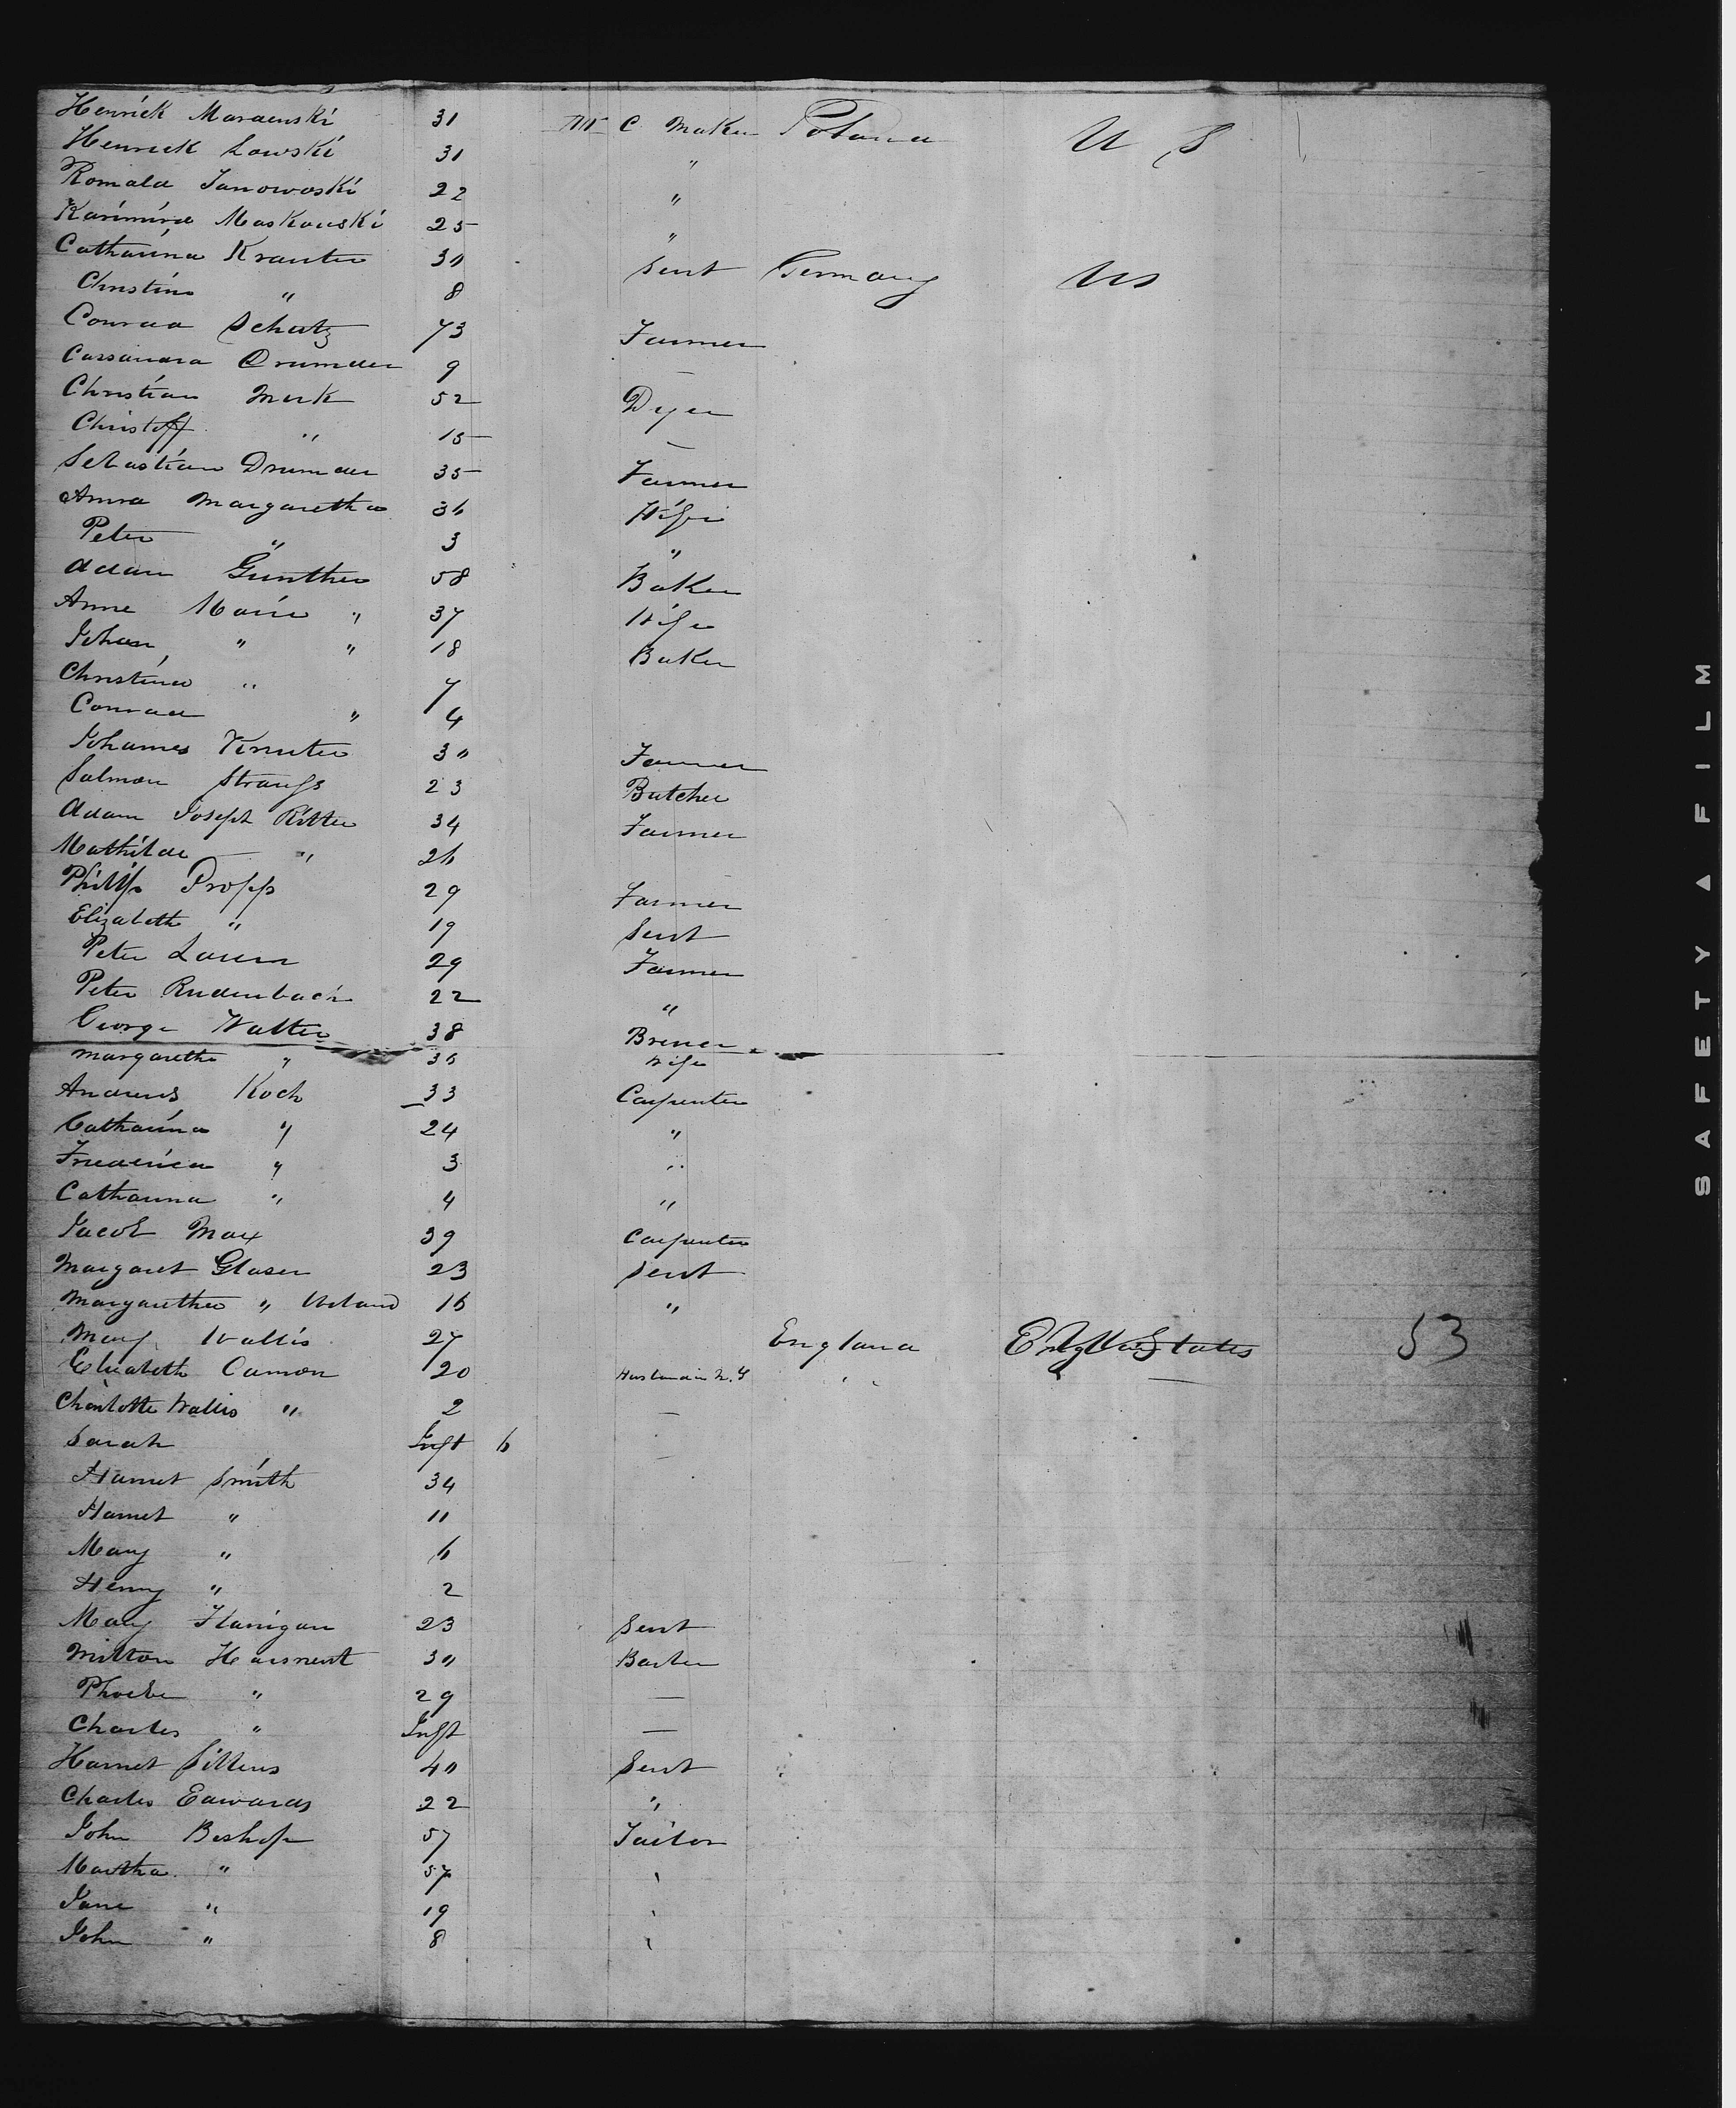 Henrick Maraenski 31 M C Maker Poland U S
Henrick Lowski 31 "
Romald Janowoski 22 "
Karimira Maskouski 25 "
Catharina Krauter 30 Servt Germany US
Christine " 8
Conrad Schatz 73 Farmer
Cassandra Drumder 9 —
Christian Merk 52 Dyer
Christoff " 15 —
Sebastian Drumder 35 Farmer
Anna Margaretha 36 Wife
Peter " 3 "
Adam Günther 58 Baker
Anne Marie " 37 Wife
Johan " " 18 Baker
Christina " 7
Conrad " 4
Johannes 30 Farmer
Salmon Strauss 23 Butcher
Adam Joseph Ritter 34 Farmer
Mathilde " 26
Philipp Propp 29 Farmer
Elizabeth " 19 Servt
Peter 29 Farmer
Peter Rudenbach 22 "
George Walter 38 Brewer
Margaretha " 36 Wife
Andreas Koch 33 Carpenter
Catharina " 24 "
Frederica " 3 "
Catharina " 4 "
Jacob May 39 Carpenter
Margaret Glaser 23 Servt
Margaretha " 16 "
Mary Wallis 27 England 53
Elizabeth Camon 20 Husband in N.Y "
Charlotte Wallis " 2 —
Sarah Inft 6 —
Harriet Smith 34
Harriet " 11
Mary " 6
Henry " 2
Mary Flanigan 23 Servt
Milton Harsnent 30 Barber
Phoebe " 29 —
Charles " Inft —
Harriet Sittens 40 Servt
Charles Edwards 22 "
John Bishop 57 Tailor
Martha " 57
Jane " 19
John " 8
SAFETY ▲ FILM